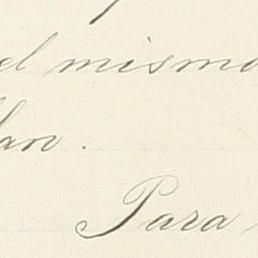 el mismo
lan.
Para